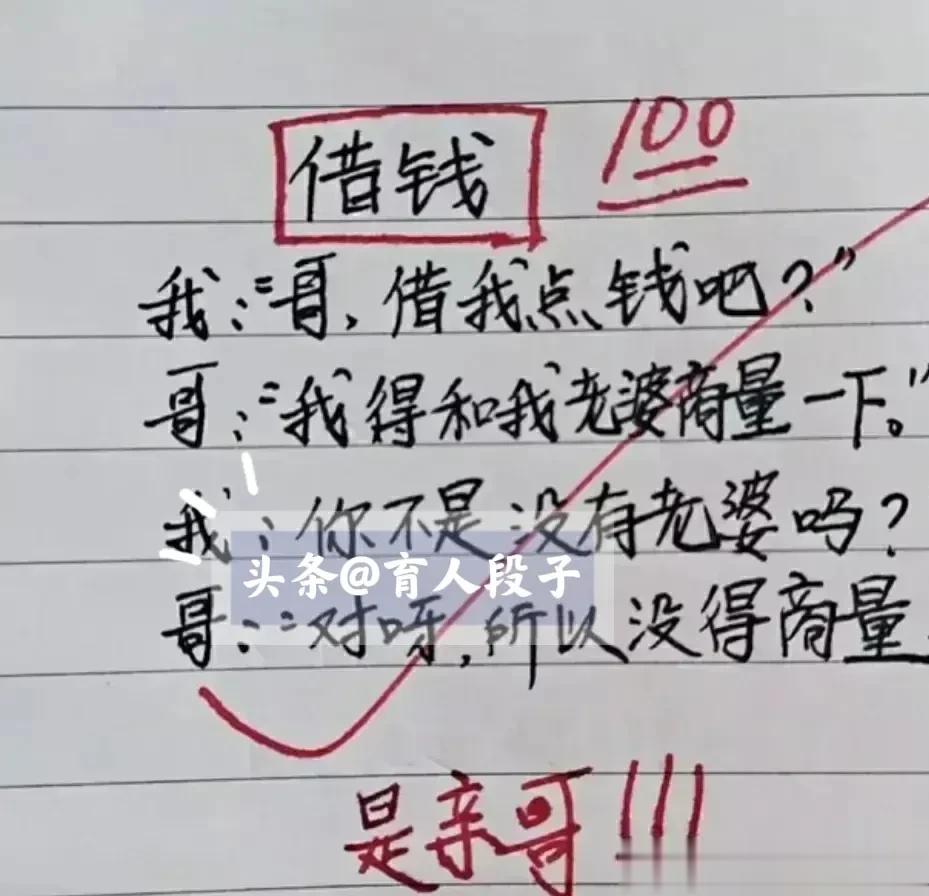 借钱
100
我:“哥,借我点钱吧?”
哥:“我得和我老婆商量一下。”
我:你不是没有老婆吗?
头条@育人段子
哥:“对呀,所以没得商量
是亲哥!!!